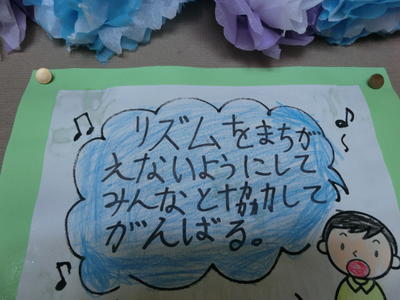 リズムをまちが
えないようにして
みんなと協力して
がんばる。